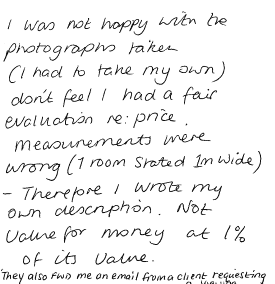 I was not happy with the
photographs taken
(I had to take my own)
don't feel I had a fair
evaluation re: price.
measurements were
wrong (1 room stated 1m wide)
- Therefore I wrote my
own description. Not
Value for money at 1%
of its value.
They also FWD me an email from a client requesting
a viewing